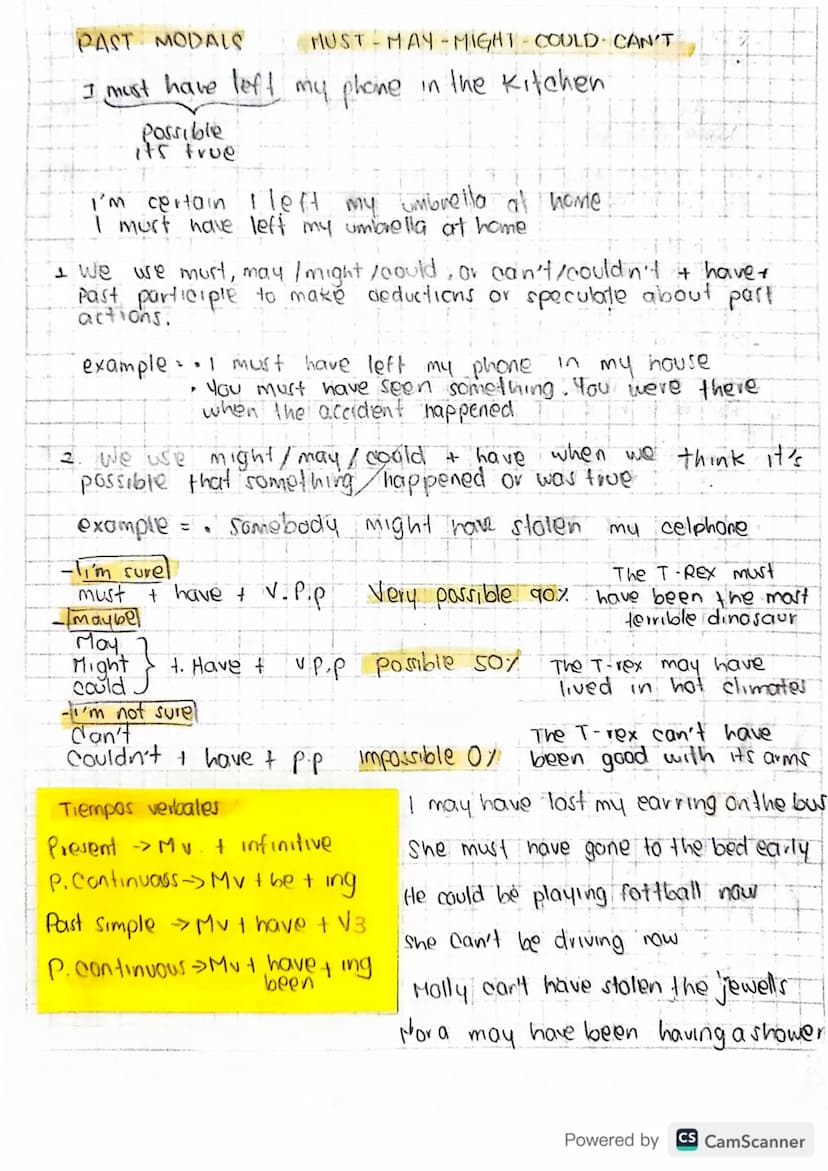 PAST MODALS MUST-MAY-MIGHT-COULD-CAN'T
I must have left my phone in the kitchen
possible
its true
I'm certain I left my umbrella at home
I must have left my umbrella at home
1 We use must, may/might/could, or can't/couldn't + have+
past participle to make deductions or speculate about past
actions.
example = • I must have left my phone in my house
• You must have seen something. You were there
when the accident happened
2. We use might/may/could + have when we think it's
possible that something/happened or was true
example = • Somebody might have stolen my celphone
-I'm sure
must + have + V.P.p Very possible 90% The T-Rex must
have been the most
terrible dinosaur
-maybe
May
Might
could
+. Have + v p.p possible 50% The T-rex may have
lived in hot climates
-I'm not sure
Can't
Couldn't + have + p.p impossible 0% The T-rex can't have
been good with its arms
Tiempos verbales
Present -> Mv. + infinitive
P. Continuoss-> Mv + be + ing
Past simple -> Mv + have + V3
P. continuous -> Mv + have + ing
been
I may have lost my earring on the bus
She must have gone to the bed early
He could be playing fottball now
She can't be driving now
Molly can't have stolen the jewells
Nora may have been having a shower
Powered by CS CamScanner